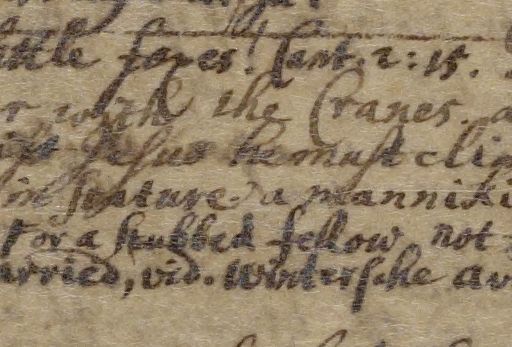 ttle foxes. Cant. 2: 15.
r with the Cranes. a
Jesus he must cli
in stature. a manniki
For a stubbed fellow not
arried, vid. Wintersche av